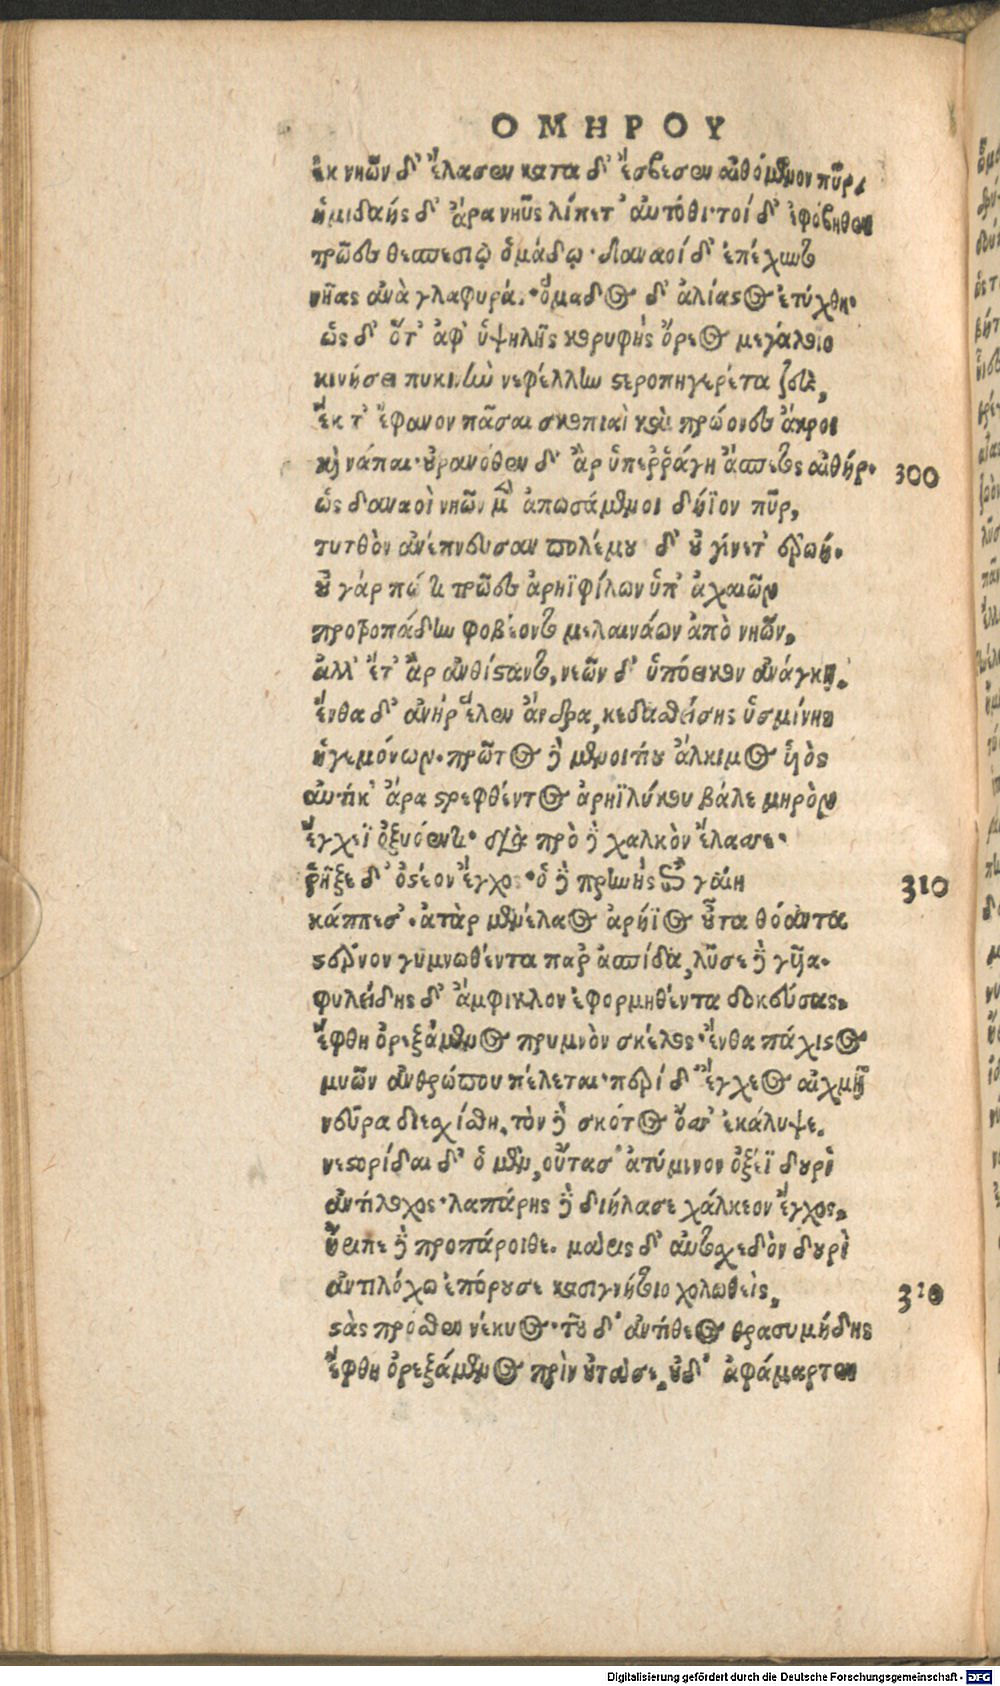 ΟΜΗΡΟΥ
ἐκ νηῶν δ' ἔλασεν κατα δ' ἔσβεσεν αἰθόμενον πῦρ,
ἡμιδαὴς δ' ἄρα νηῦς λίπετ' αὐτόθι· τοὶ δ' ἐφόβηθεν
τρῶες θεσπεσίῳ ὁμάδῳ· δαναοὶ δ' ἐπέχωντο
νῆας ἀνὰ γλαφυρά. ὅμαδος δ' ἀλίαστος ἐτύχθη.
ὡς δ' ὅτ' ἀφ' ὑψηλῆς κορυφῆς ὄρεος μεγάλοιο
κινήσει πυκινὴν νεφέλλην στεροπηγερέτα ζεὺς,
ἔκ τ' ἔφανον πᾶσαι σκοπιαὶ καὶ πρώονες ἄκροι
καὶ νάπαι· οὐρανόθεν δ' ἂρ ὑπεῤῥάγη ἄσπετος αἰθήρ. 300
ὣς δαναοὶ νηῶν μὲν ἀπωσάμενοι δήϊον πῦρ,
τυτθὸν ἀνέπνευσαν πολέμου δ' οὐ γίνετ' ἐρωή.
οὐ γάρ πώ τι τρῶες ἀρηϊφίλων ὑπ' ἀχαιῶν
προτροπάδην φοβέοντο μελαινάων ἀπὸ νηῶν,
ἀλλ' ἔτ' ἂρ ἀνθίσταντο, νεῶν δ' ὑπόεικον ἀνάγκῃ.
ἔνθα δ' ἀνὴρ ἕλεν ἄνδρα, κεδασθείσης ὑσμίνης
ἡγεμόνων. πρῶτος δὲ μενοιτίου ἄλκιμος υἱὸς
αὐτίκ' ἄρα στρεφθέντος ἀρηϊλύκου βάλε μηρὸν
ἔγχεϊ ὀξυόεντι· διὰ πρὸ δὲ χαλκὸν ἔλασσε.
ῥῆξε δ' ὀστέον ἔγχος· ὁ δὲ πρηνὴς ἐπὶ γαίῃ 310
κάππεσ'. ἀτὰρ μενέλαος ἀρήϊος οὖτα θόαντα
στέρνον γυμνωθέντα παρ' ἀσπίδα, λῦσε δὲ γυῖα.
φυλείδης δ' ἄμφικλον ἐφορμηθέντα δοκεύσας,
ἔφθη ὀρεξάμενος πρυμνὸν σκέλος, ἔνθα πάχιστος
μυὼν ἀνθρώπου πέλεται· περὶ δ' ἔγχεος αἰχμῇ
νεῦρα διεσχίσθη, τὸν δὲ σκότος ὄσσ' ἐκάλυψε.
νεστορίδαι δ' ὁ μὲν, οὔτασ' ἀτύμνιον ὀξέϊ δουρὶ
ἀντίλοχος· λαπάρης δὲ διήλασε χάλκεον ἔγχος,
ἤριπε δὲ προπάροιθε. μάρις δ' αὐτοσχεδὸν δουρὶ
ἀντιλόχῳ ἐπόρουσε κασιγνήτοιο χολωθεὶς, 320
στὰς πρόσθεν νέκυος· τοῦ δ' ἀντίθεος θρασυμήδης
ἔφθη ὀρεξάμενος πρὶν οὐτάσαι, οὐδ' ἀφάμαρτεν
Digitalisierung gefördert durch die Deutsche Forschungsgemeinschaft - DFG